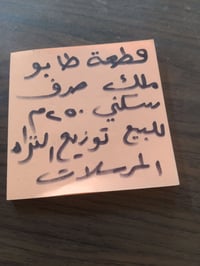 قطعة طابو
ملك صرف
سكني ٢٥٠م
للبيع توزيع النزاه
المرسلات